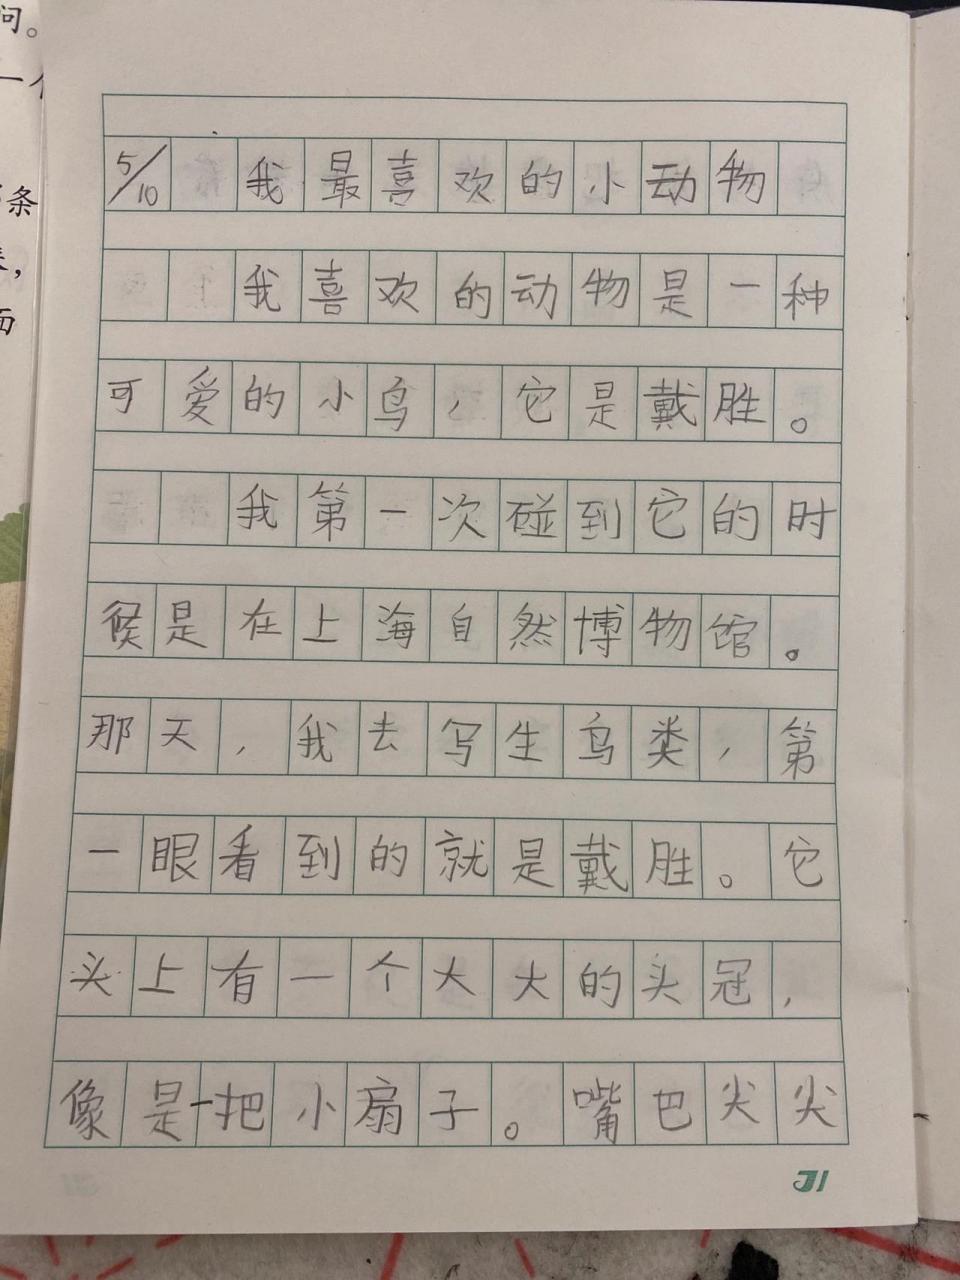 问。
一个
条
面
5/10 我最喜欢的小动物
我喜欢的动物是一种
可爱的小鸟，它是戴胜。
我第一次碰到它的时
候是在上海自然博物馆。
那天，我去写生鸟类，第
一眼看到的就是戴胜。它
头上有一个大大的头冠，
像是一把小扇子。嘴巴尖尖
31